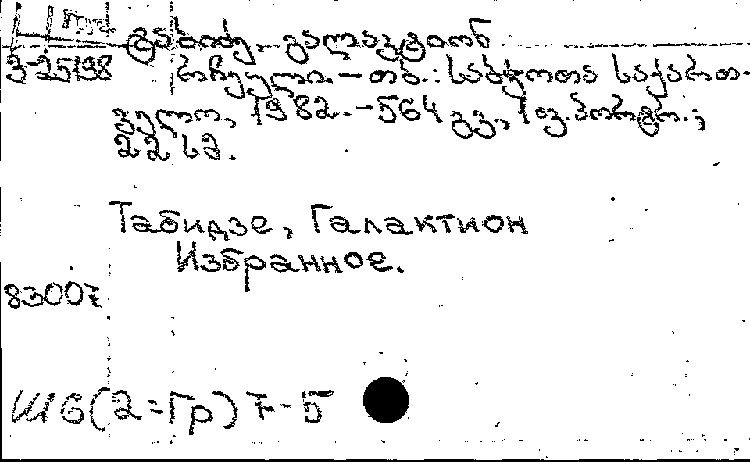 ტაბიძე, გალაკტიონ
3-25198 რჩეული. – თბ.: საბჭოთა საქართ-
ველო, 1982. – 564 გვ, 1 ფ. პორტრ.;
22 სმ.
Табидзе, Галактион
Избранное.
83007
Ш6(2=Гр)7-5